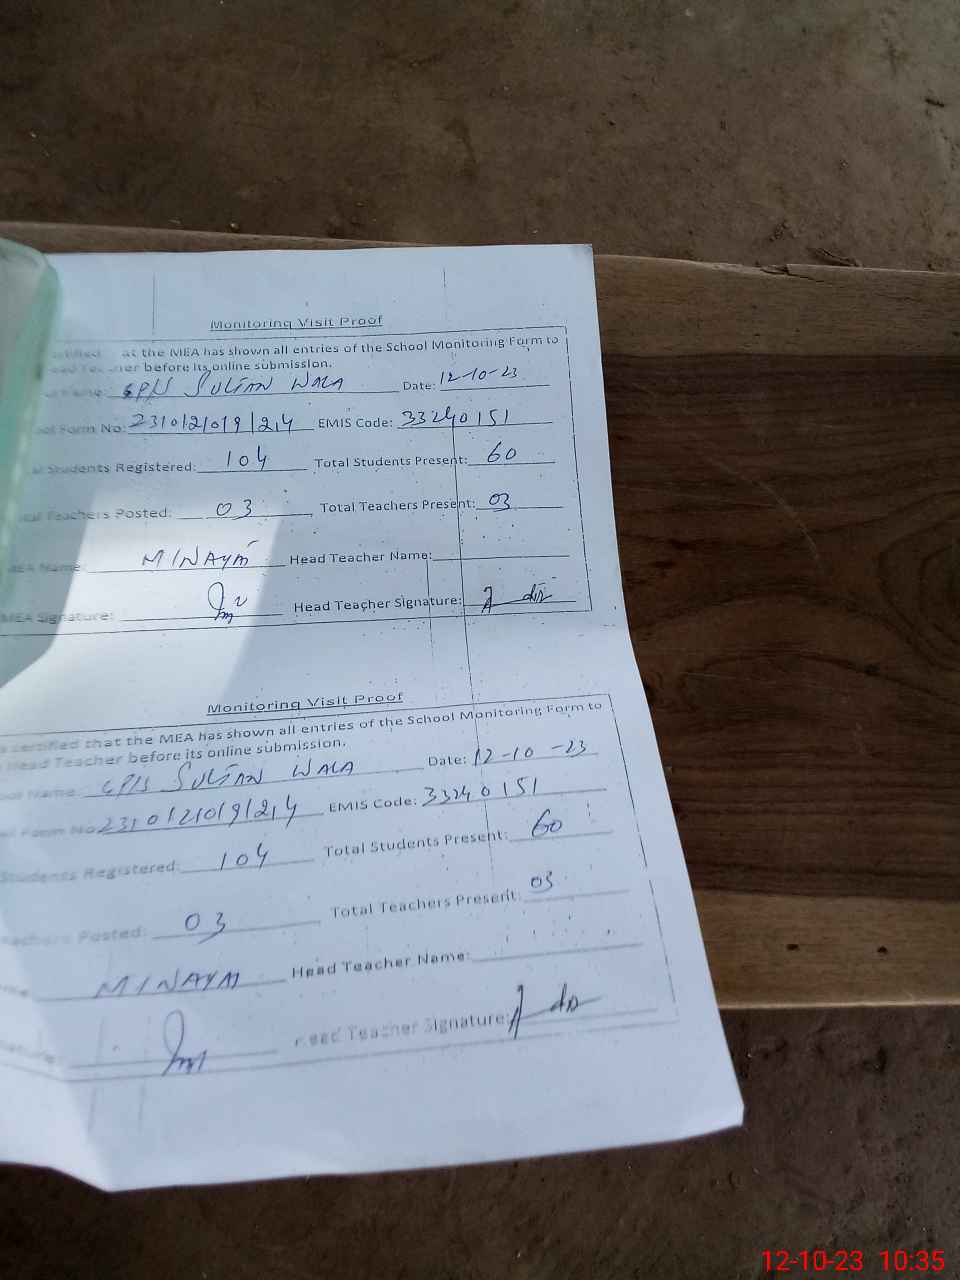 Monitoring Visit Proof
at the MEA has shown all entries of the School Monitoring Form to
before its online submission.
SULTAN WALA Date: 12-10-23
Form No: 2310/2/019/2,4 EMIS Code: 33240151
Students Registered: 104 Total Students Present: 60
Teachers Posted: 03 Total Teachers Present: 03
MEA Name: MINAYM Head Teacher Name:
MEA Signature: Head Teacher Signature:
Monitoring Visit Proof
certified that the MEA has shown all entries of the School Monitoring Form to
Head Teacher before its online submission.
Name: SULTAN WALA Date: 12-10-23
Form No 2310/2/019/2,4 EMIS Code: 33240151
Students Registered: 104 Total Students Present: 60
Posted: 03 Total Teachers Present: 03
MINAYM Head Teacher Name:
Teacher Signature:
12-10-23 10:35